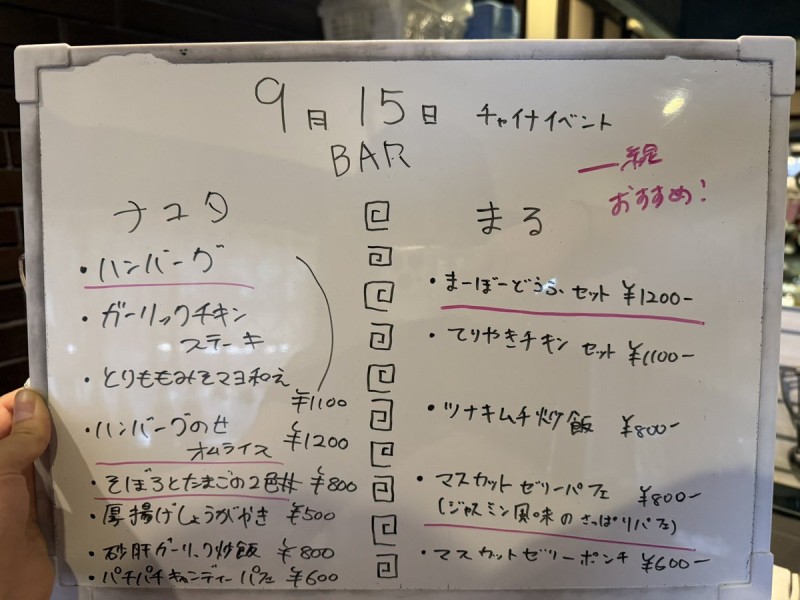 9月15日 チャイナイベント
BAR
一線
おすすめ!
ナユタ
・ハンバーグ
・ガーリックチキン
ステーキ
・とりももみそマヨ和え
¥1100
・ハンバーグのせ
オムライス ¥1200
・そぼろとたまごの2色丼 ¥800
・厚揚げしょうがやき ¥500
・砂肝ガーリック炒飯 ¥800
・パチパチキャンディーパフェ ¥600
まる
・まーぼーどうふ セット ¥1200-
・てりやきチキン セット ¥1100-
・ツナキムチ炒飯 ¥800-
・マスカットゼリーパフェ ¥800-
(ジャスミン風味のさっぱりパフェ)
・マスカットゼリーポンチ ¥600-